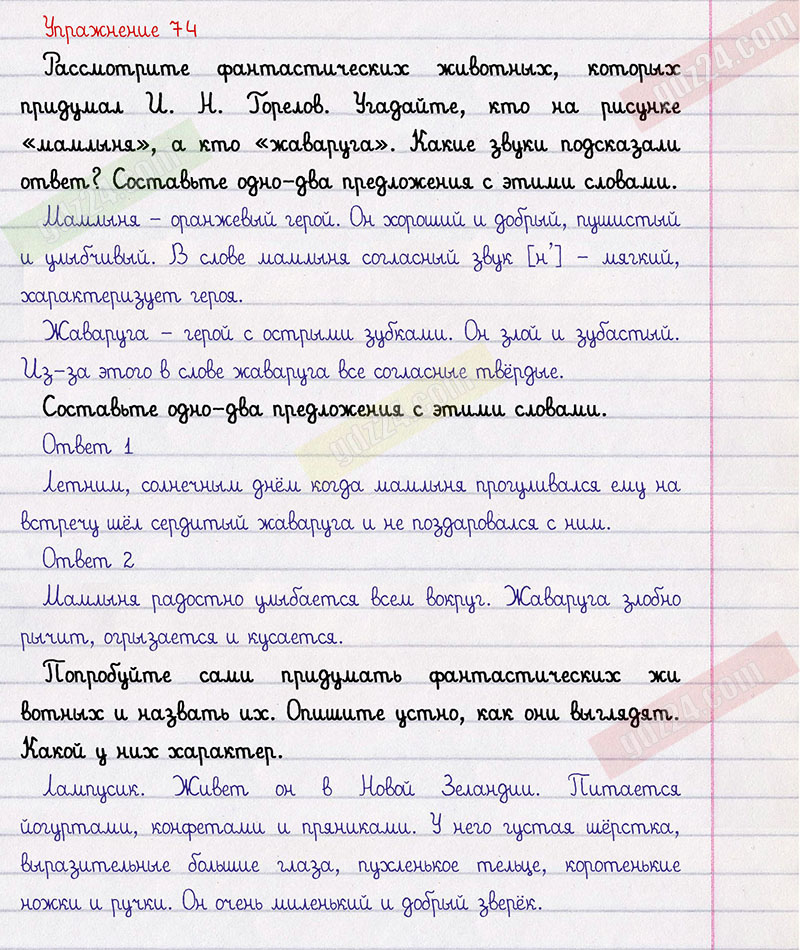 Упражнение 74
Рассмотрите фантастических животных, которых
придумал И. Н. Горелов. Угадайте, кто на рисунке
«мамлыня», а кто «жаваруга». Какие звуки подсказали
ответ? Составьте одно-два предложения с этими словами.
Мамлыня – оранжевый герой. Он хороший и добрый, пушистый
и улыбчивый. В слове мамлыня согласный звук [н’] – мягкий,
характеризует героя.
Жаваруга – герой с острыми зубками. Он злой и зубастый.
Из-за этого в слове жаваруга все согласные твёрдые.
Составьте одно-два предложения с этими словами.
Ответ 1
Летним, солнечным днём когда мамлыня прогуливался ему на
встречу шёл сердитый жаваруга и не поздаровался с ним.
Ответ 2
Мамлыня радостно улыбается всем вокруг. Жаваруга злобно
рычит, огрызается и кусается.
Попробуйте сами придумать фантастических жи
вотных и назвать их. Опишите устно, как они выглядят.
Какой у них характер.
Лампусик. Живет он в Новой Зеландии. Питается
йогуртами, конфетами и пряниками. У него густая шёрстка,
выразительные большие глаза, пухленькое тельце, коротенькие
ножки и ручки. Он очень миленький и добрый зверёк.
gdz24.com
gdz24.com
gdz24.com
gdz24.com